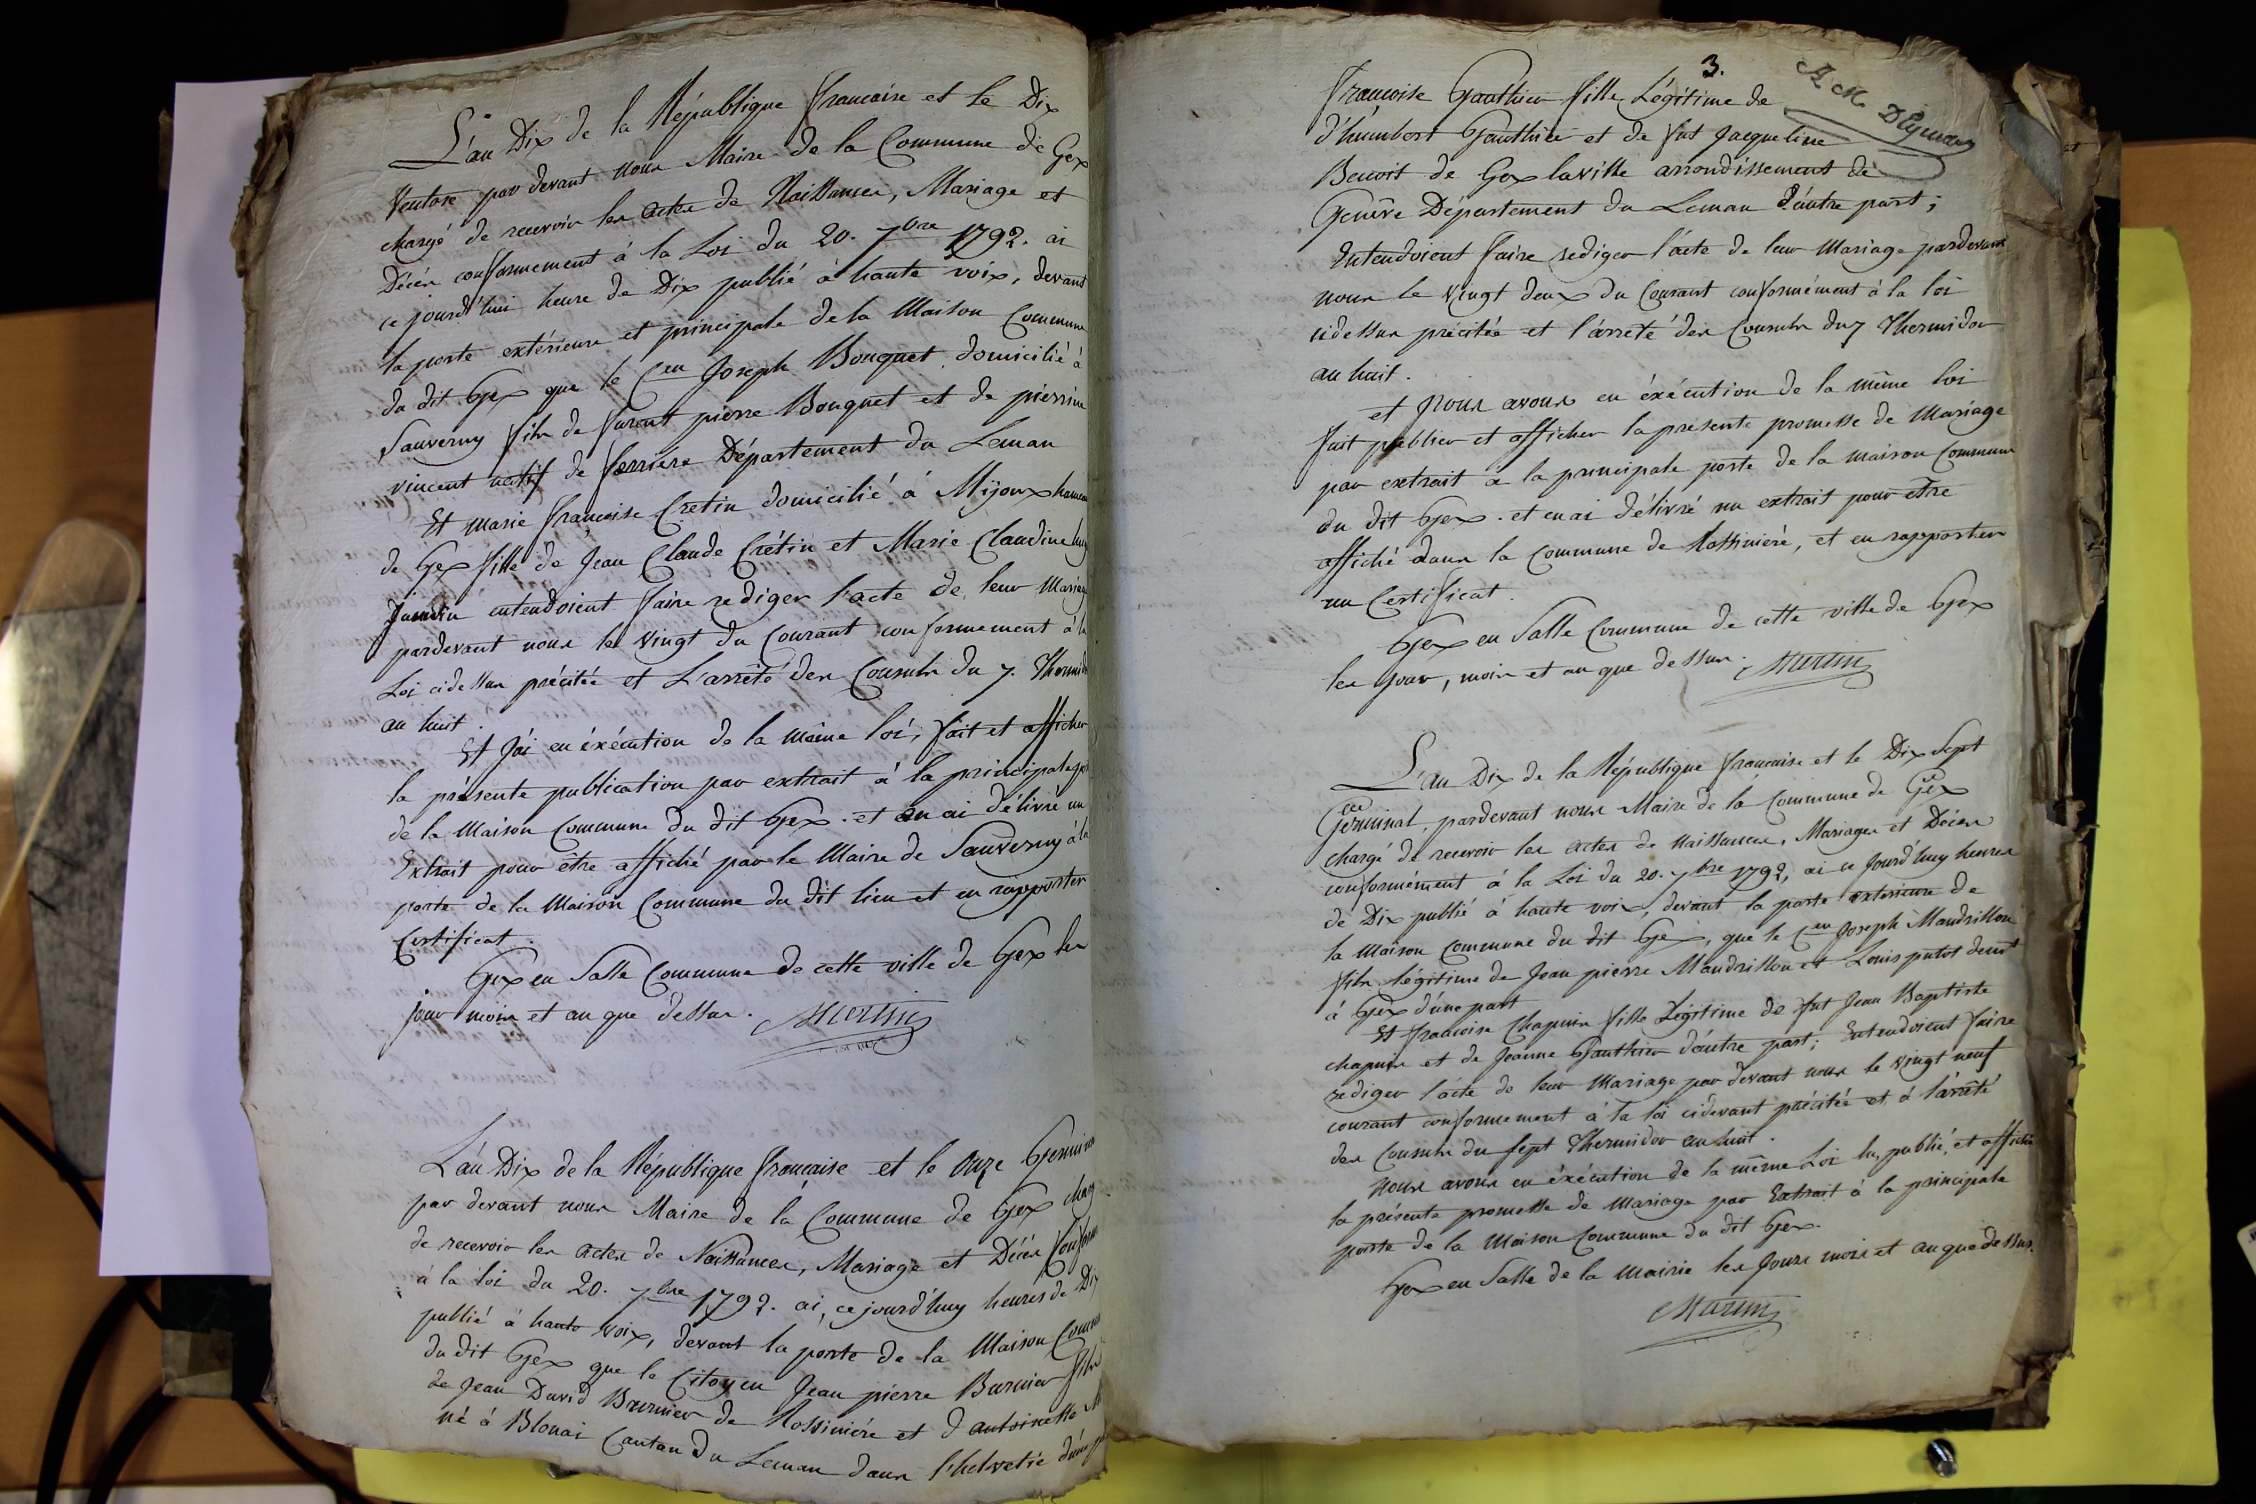 L'an Dix de la République francaise et le Dix
Ventose par devant nous Maire de la Commune de Gex
chargé de recevoir les actes de Naissances, Mariage et
Décès conformement à la Loi du 20. 7bre 1792. ai
ce jourd'hui heure de Dix publié à haute voix, devant
la porte extérieure et principale de la Maison Commune
du dit Gex que le Cen Joseph Bouquet domicilié à
Sauverny fils de furent pierre Bouquet et de pierrine
vincent natif de ferriere Département du Leman
Et marie françoise Cretin domicilié à Mijoux hameau
de Gex fille de Jean Claude Crétin et Marie Claudine
entendoient faire rediger l'acte de leur Mariage
pardevant nous le vingt du Courant conformement à la
Loi cidessus précitée et L'arrêté des Consuls du 7. Thermidor
an huit.
Et j'ai en éxécution de la même loi, fait et afficher
la présente publication par extrait à la principale
de la Maison Commune du dit Gex. et en ai délivré un
Extrait pour être affiché par le Maire de Sauverny à la
porte de la Maison Commune du dit lieu et en rapporter
Certificat.
Gex en Salle Commune de cette ville de Gex les
jour mois et an que dessus. Martin
L'an Dix de la République française et le Onze Germinal
par devant nous Maire de la Commune de Gex
de recevoir les actes de Naissances, Mariage et Décès
à la loi du 20. 7bre 1792. ai, ce jourd'huy heures de Dix
publié à haute voix, devant la porte de la Maison
du dit Gex que le Citoyen Jean pierre Burnier fils
de Jean David Burnier de Rossiniére et d'antoinette
né à Blonai Canton du Leman dans l'helvetie d'une
3.
A M. D'Eymar
françoise Gauthier fille Légitime de
d'humbert Gauthier et de fut Jacqueline
Benoit de Gex laville arrondissement de
Genève Département du Leman d'autre part;
Entendoient faire rediger l'acte de leur Mariage pardevant
nous le vingt deux du Courant conformément à la loi
cidessus précitée et l'arreté des Consuls du 7 Thermidor
an huit.
et Nous avons en éxécution de la même loi
fait publier et afficher la présente promesse de Mariage
par extrait a la principale porte de la maison Commune
du dit Gex. et en ai délivré un extrait pour être
affiché dans la Commune de Rossiniére, et en rapporter
un Certificat.
Gex en Salle Commune de cette ville de Gex
les jour, mois et an que dessus. Martin
L'an Dix de la République francaise et le Dix Sept
Germinal, pardevant nous Maire de la Commune de Gex
chargé de recevoir les actes de naissances, Mariages et Décès
conformément à la Loi du 20. 7bre 1792, ai ce jourd'huy heures
de Dix publié à haute voix, devant la porte exterieure de
la Maison Commune du dit Gex, que le Cen Joseph Mandrillon
fils légitime de Jean pierre Mandrillon et Louis putot demt
à Gex d'une part
Et francoise Chapuis fille Légitime de fut Jean Baptiste
chapuis et de Jeanne Gauthier d'autre part; Entendoient faire
rediger l'acte de leur Mariage par devant nous le vingt neuf
courant conformement à la loi cidevant précitée et à l'arrêté
des Consuls du sept Thermidor an huit.
Nous avons en éxécution de la même Loi lu, publié, et affiché
la présente promesse de Mariage par Extrait à la principale
porte de la Maison Commune du dit Gex.
Gex en Salle de la Mairie les Jours mois et an que dessus.
Martin